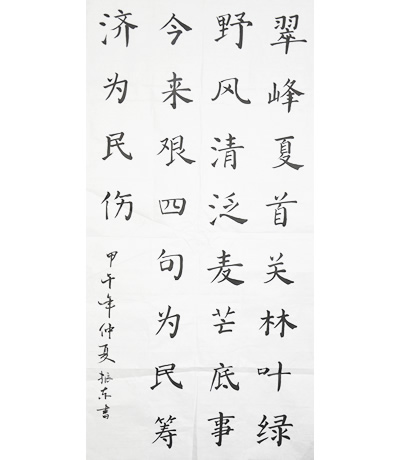 翠峰夏首关林叶绿
野风清泛麦芒底事
今来艰四句为民筹
济为民伤
甲午年仲夏振东书